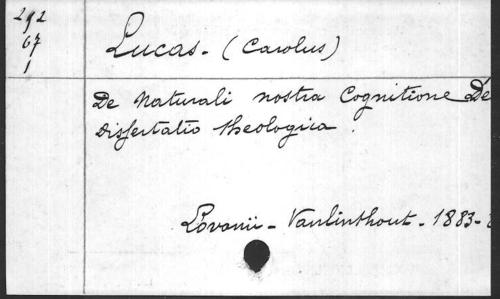 292
67
1
Lucas. (Carolus)
De Naturali nostra Cognitione De
Dissertatio theologica.
Lovanii - Vanlinthout - 1883-